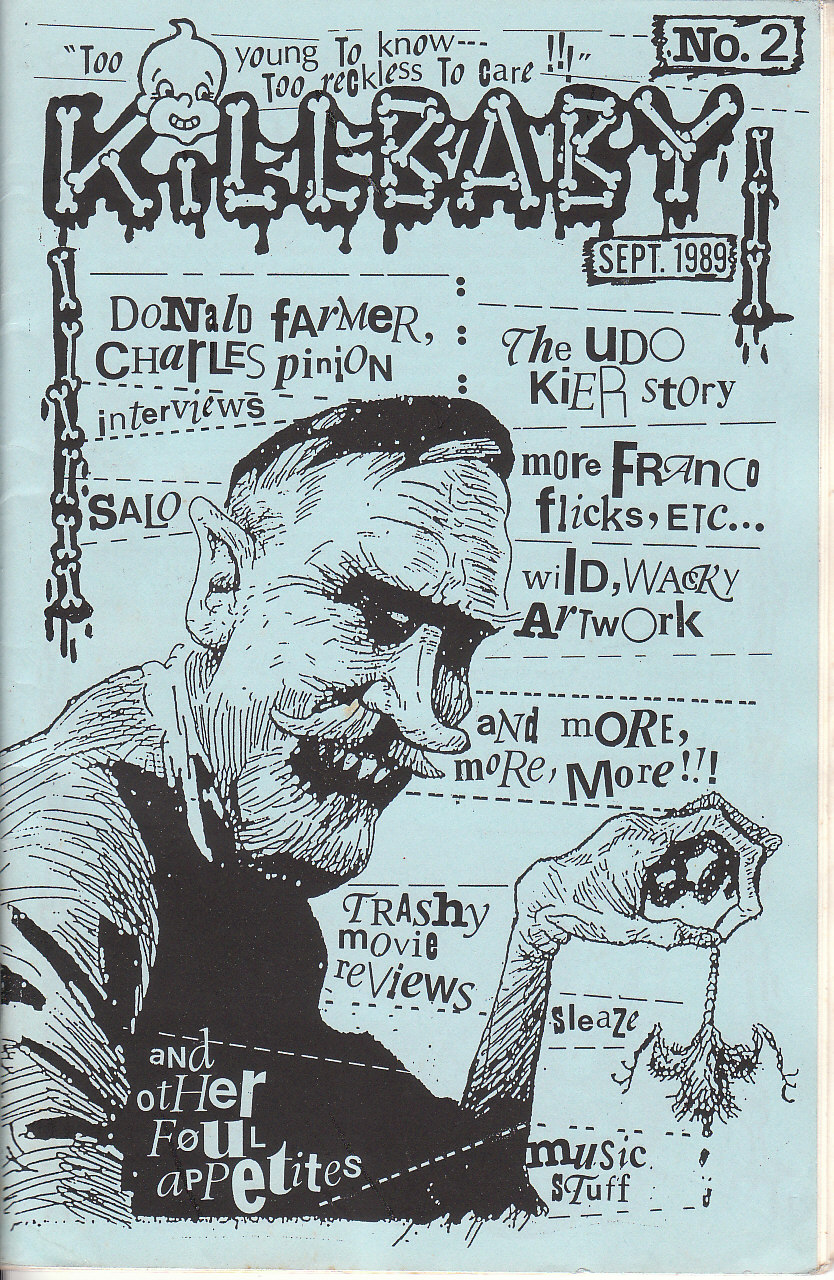 "Too young To know---
Too reckless To care!!!"
No. 2
KiLLBABY
SEPT. 1989
DoNalD fArMeR,
CHarLES piniON
interviews
The UDO
KiER story
SALO
more FRAnCO
flicks, ETC...
wilD, WACKY
ArTwOrk
aNd mORE,
moRe, More!!!
TRAshy
movie
reViews
sleaze
aNd
otHer
FøuL
aPPetites
music
sTuff